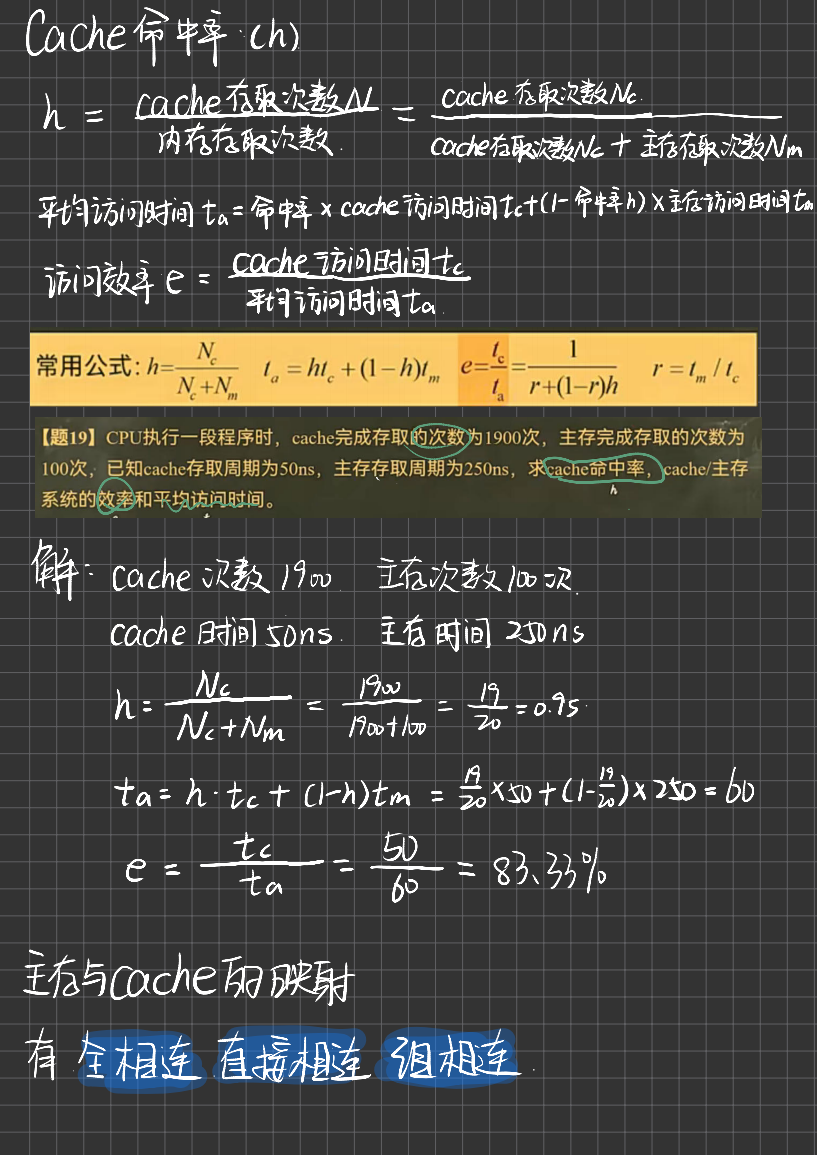 Cache命中率(h)
h = cache存取次数N / 内存存取次数 = cache存取次数Nc / cache存取次数Nc + 主存存取次数Nm
平均访问时间 ta = 命中率 × cache访问时间tc + (1-命中率h) × 主存访问时间tm
访问效率 e = cache访问时间tc / 平均访问时间ta
常用公式: h = Nc / Nc+Nm   ta = htc + (1-h)tm   e = tc / ta = 1 / r+(1-r)h   r = tm / tc
【题19】CPU执行一段程序时，cache完成存取的次数为1900次，主存完成存取的次数为
100次，已知cache存取周期为50ns，主存存取周期为250ns，求cache命中率，cache/主存
h
系统的效率和平均访问时间。
解: cache次数1900 主存次数100次
cache时间50ns 主存时间 250ns
h = Nc / Nc+Nm = 1900 / 1900+100 = 19/20 = 0.95
ta = h·tc + (1-h)tm = 19/20 ×50 + (1-19/20)×250 = 60
e = tc / ta = 50 / 60 = 83.33%
主存与cache的映射
有 全相连 直接相连 组相连